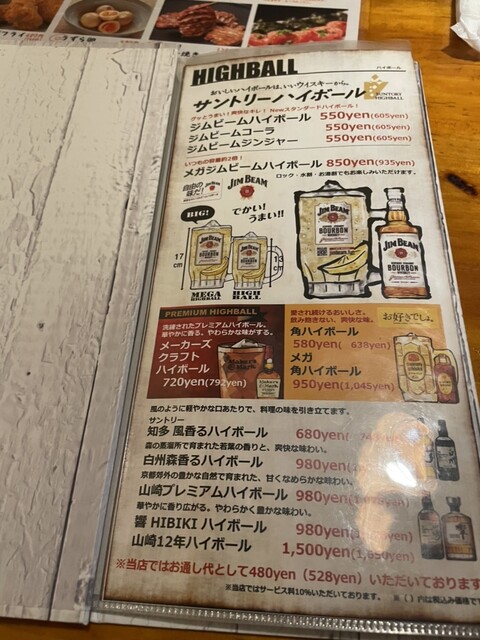 HIGHBALL
ハイボール
おいしいハイボールは、いいウイスキーから。
サントリーハイボール
SUNTORY HIGHBALL
グッとうまい!爽快なキレ! Newスタンダードハイボール!
ジムビームハイボール 550yen(605yen)
ジムビームコーラ 550yen(605yen)
ジムビームジンジャー 550yen(605yen)
いつもの容量約2倍!
メガジムビームハイボール 850yen(935yen)
ロック・水割・お湯割でもお楽しみいただけます。
自由の味だ!
JIM BEAM
BIG!
でかい!
うまい!!
17cm
13cm
JIM BEAM
BOURBON
JIM BEAM
BOURBON
MEGA HIGHBALL
HIGH BALL
PREMIUM HIGHBALL
洗練されたプレミアムハイボール。
華やかに香る。やわらかな味がする。
メーカーズ
クラフト
ハイボール
720yen(792yen)
Maker's Mark
愛され続けるおいしさ。
飲み飽きない、爽快な味。
お好きでしょ。
角ハイボール
580yen( 638yen)
メガ
角ハイボール
950yen(1,045yen)
風のように軽やかな口あたりで、料理の味を引き立てます。
サントリー
知多 風香るハイボール 680yen(
森の蒸溜所で育まれた若葉の香りと、爽快な味わい。
白州森香るハイボール 980yen(
京都郊外の豊かな自然で育まれた、甘くなめらかな味わい。
山崎プレミアムハイボール 980yen(
華やかに香り広がる。やわらかく豊かな味わい。
響 HIBIKI ハイボール 980yen(
山崎12年ハイボール 1,500yen(1,650yen)
※当店ではお通し代として480yen(528yen)いただいております
※当店ではサービス料10%いただいております。 ※( )内は税込み価格です